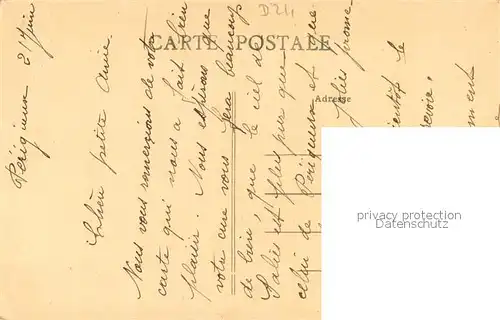 D24
CARTE POSTALE
Adresse
Périgueux 21 Juin
Chère petite Amie
Nous vous remercions de votre
carte qui nous a fait bien
plaisir. Nous espérons que
votre cure vous fera beaucoup
de bien, que le ciel de
Salies est plus pur que
celui de Périgueux et
Salies
bientôt le
revoir.
privacy protection
Datenschutz